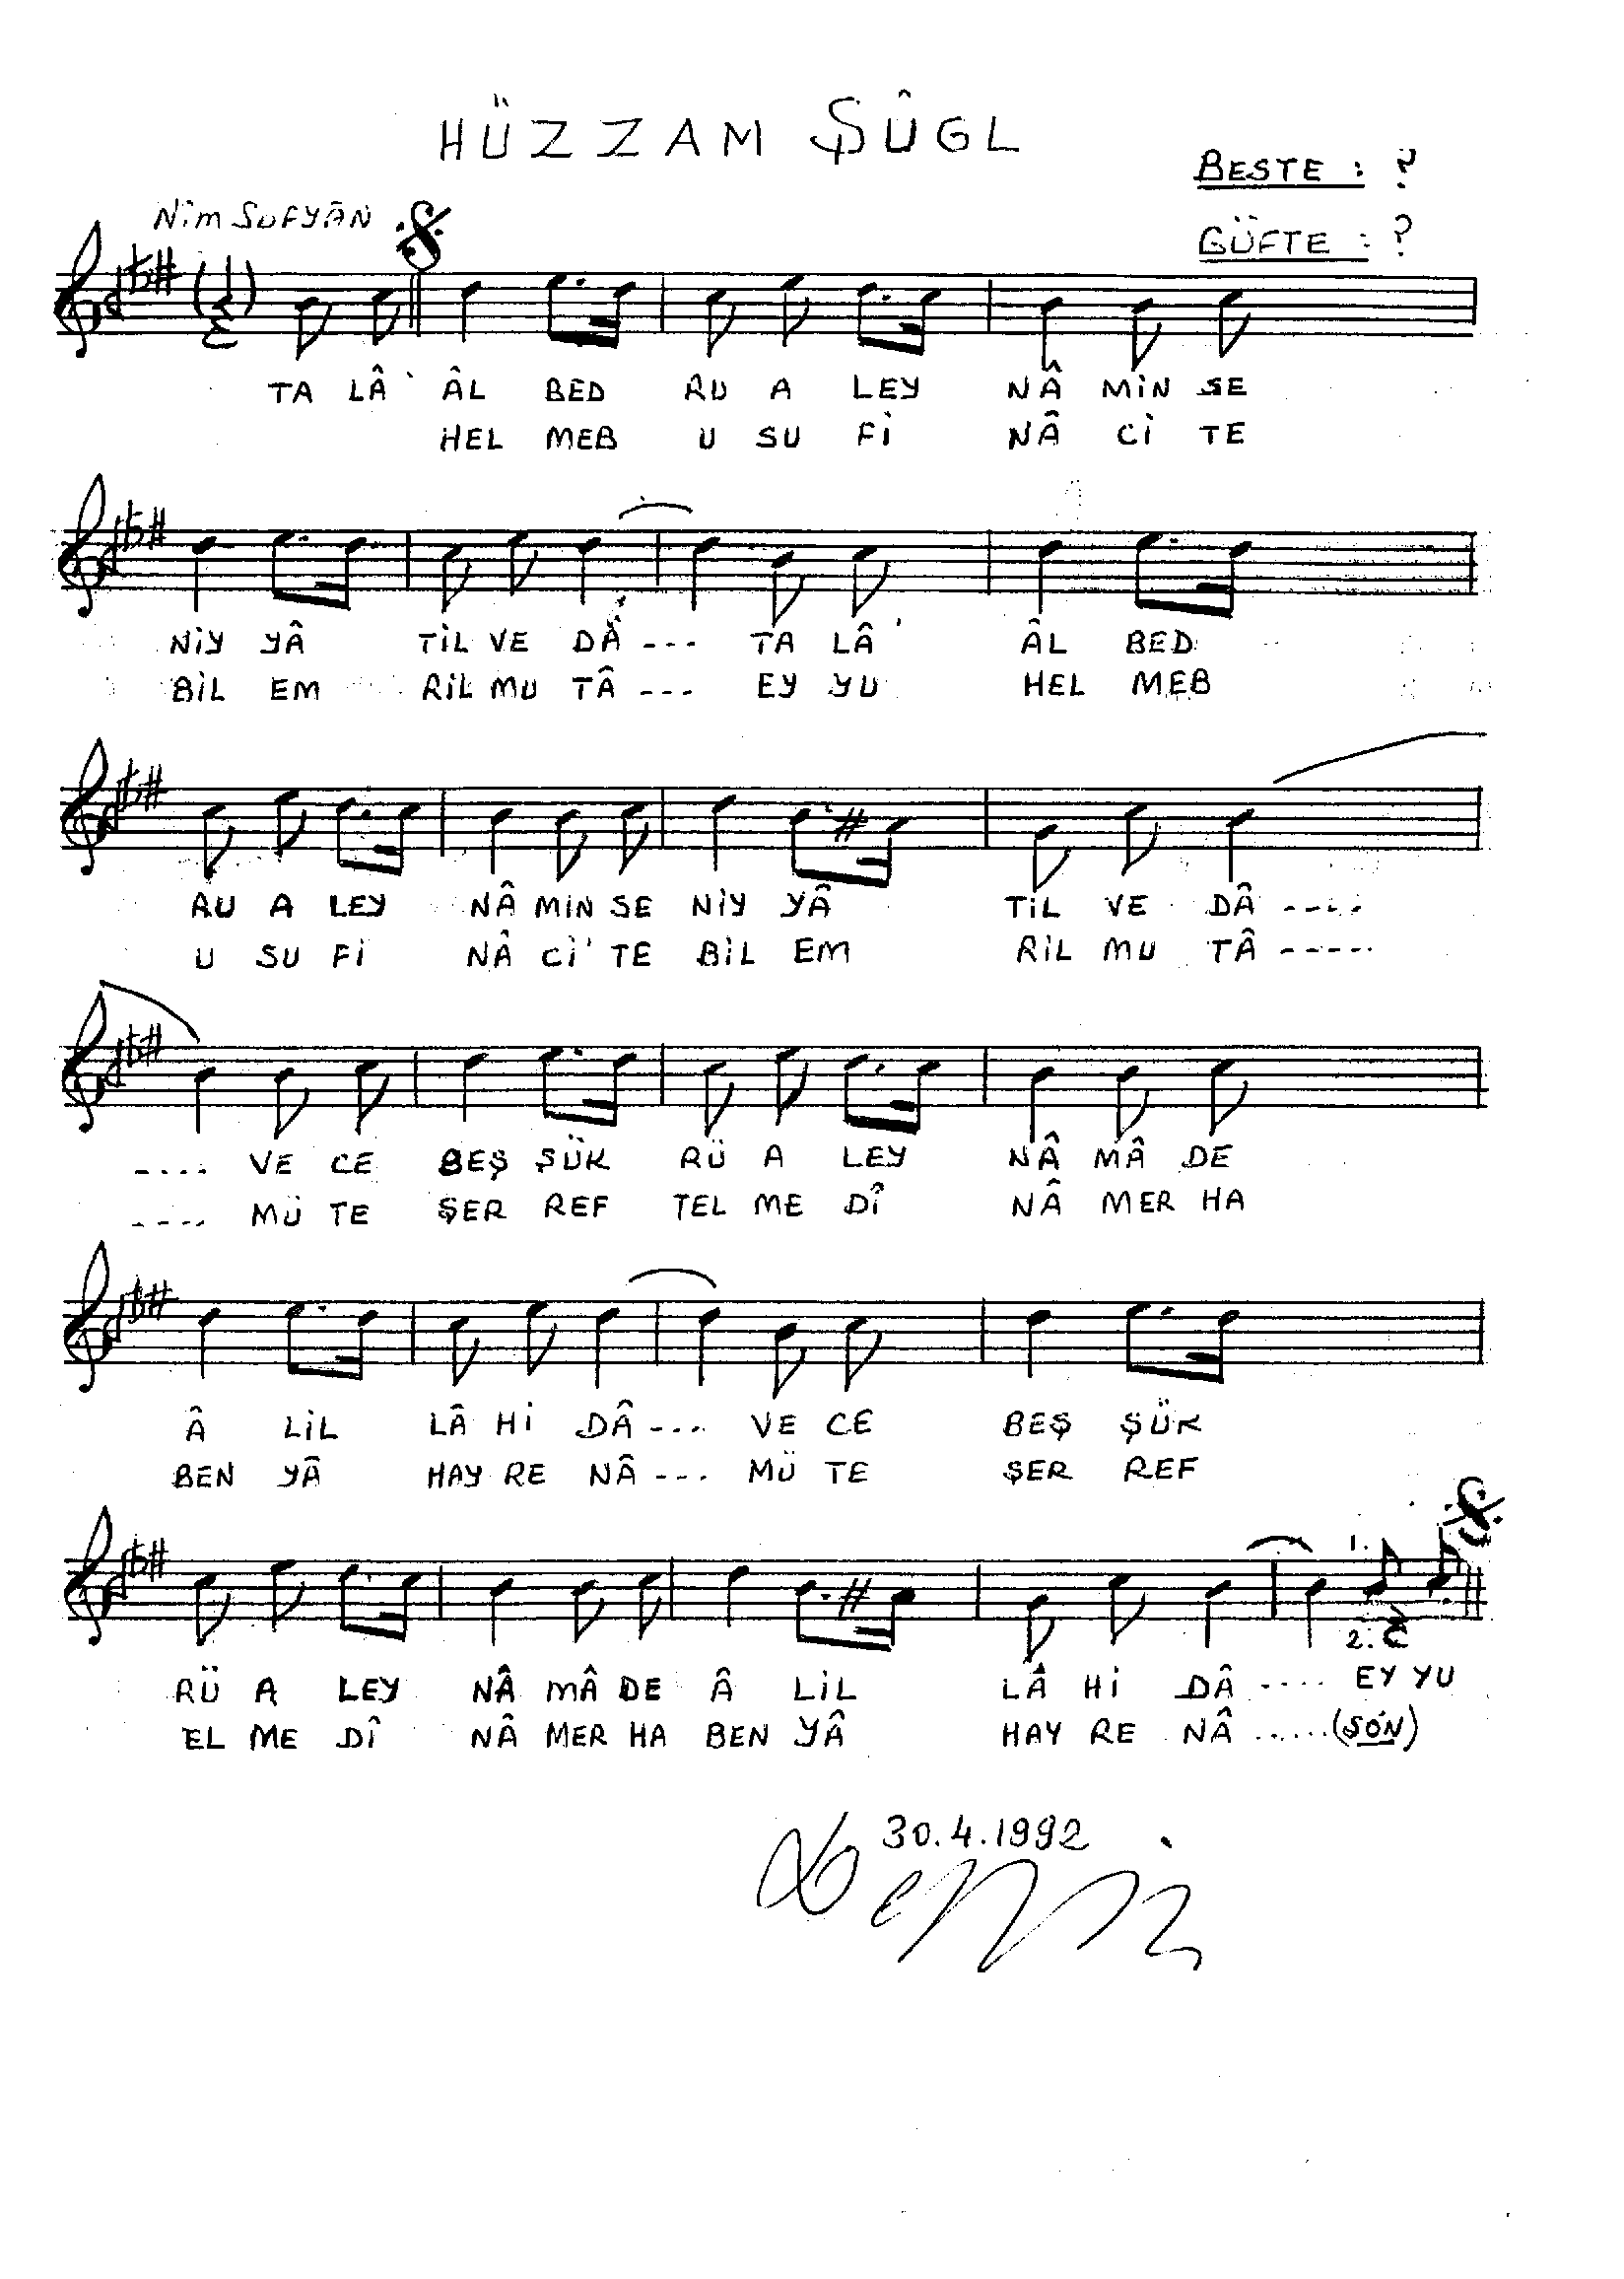 HÜZZAM ŞÛGL
BESTE : ?
Nim SUFYÂN
GÜFTE : ?
TA LÂ' ÂL BED RU A LEY NÂ MİN SE
HEL MEB U SU Fİ NÂ Cİ TE
NİY YÂ TİL VE DÂ --- TA LÂ' ÂL BED
BİL EM RİL MU TÂ --- EY YU HEL MEB
RU A LEY NÂ MİN SE NİY YÂ TİL VE DÂ ----
U SU Fİ NÂ Cİ' TE BİL EM RİL MU TÂ -----
.... VE CE BEŞ ŞÜK RÜ A LEY NÂ MÂ DE
---- MÜ TE ŞER REF TEL ME DÎ NÂ MER HA
Â LİL LÂ Hİ DÂ --- VE CE BEŞ ŞÜK
BEN YÂ HAY RE NÂ --- MÜ TE ŞER REF
1.
2.
RÜ A LEY NÂ MÂ DE Â LİL LÂ Hİ DÂ .... EY YU
EL ME DÎ NÂ MER HA BEN YÂ HAY RE NÂ .....(SON)
30.4.1992